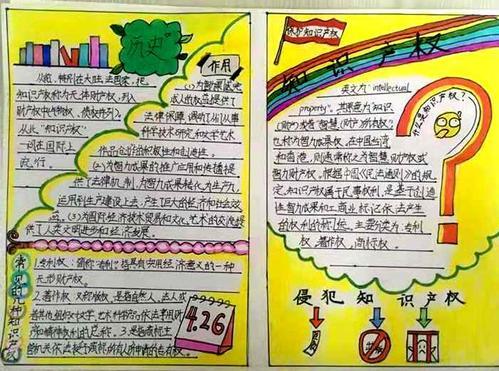 历史
从前，特别在大陆法国家，把
知识产权称为无体财产权，列入
财产中物权，债权并列
从此"知识产权"
一词在国际上
流行。
作用
(1)为智力成果完
成人的权益提供了
法律保障，调动了人们从事
科学技术研究和文学艺术
作品创作的积极性和创造性。
(2)为智力成果的推广应用和传播提
供了法律机制，为智力成果转化为生产力
运用到生产建设上去，产生了巨大的经济和社会效
益。(3)为国际经济技术贸易和文化艺术的交流提
供了
人类文明进步和经济发展。
常见的几种知识产权
1.专利权：简称"专利"
经济意义的一种
无形财产权。
2.著作权 又称版权，是指自然人、法人或
者其他组织
文学、艺术
和精神权利的总称。3.
4.26
保护知识产权
知识产权
英文为"intellectual
property"，其原意为"知识
(财产)所有权"或者"智慧(财产)所有权"，
也称为智力成果权，在中国台湾
和香港，则通常称之为智慧财产权或
智力财产权。根据中国《民法通则》的规
定，知识产权属于民事权利，是基于创造
性智力成果和工商业标记依法产生
的权利的统称。主要分类为：专利
权，著作权，商标权。
什么是知识产权？
侵犯知识产权